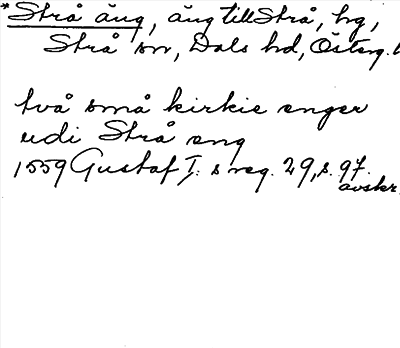 *Strå äng, äng till Strå, hg,
Strå sn, Dals hd, Österg. l
två små kirkie enger
udi Strå eng
1559 Gustaf I:s reg. 29, s. 97.
avskr.